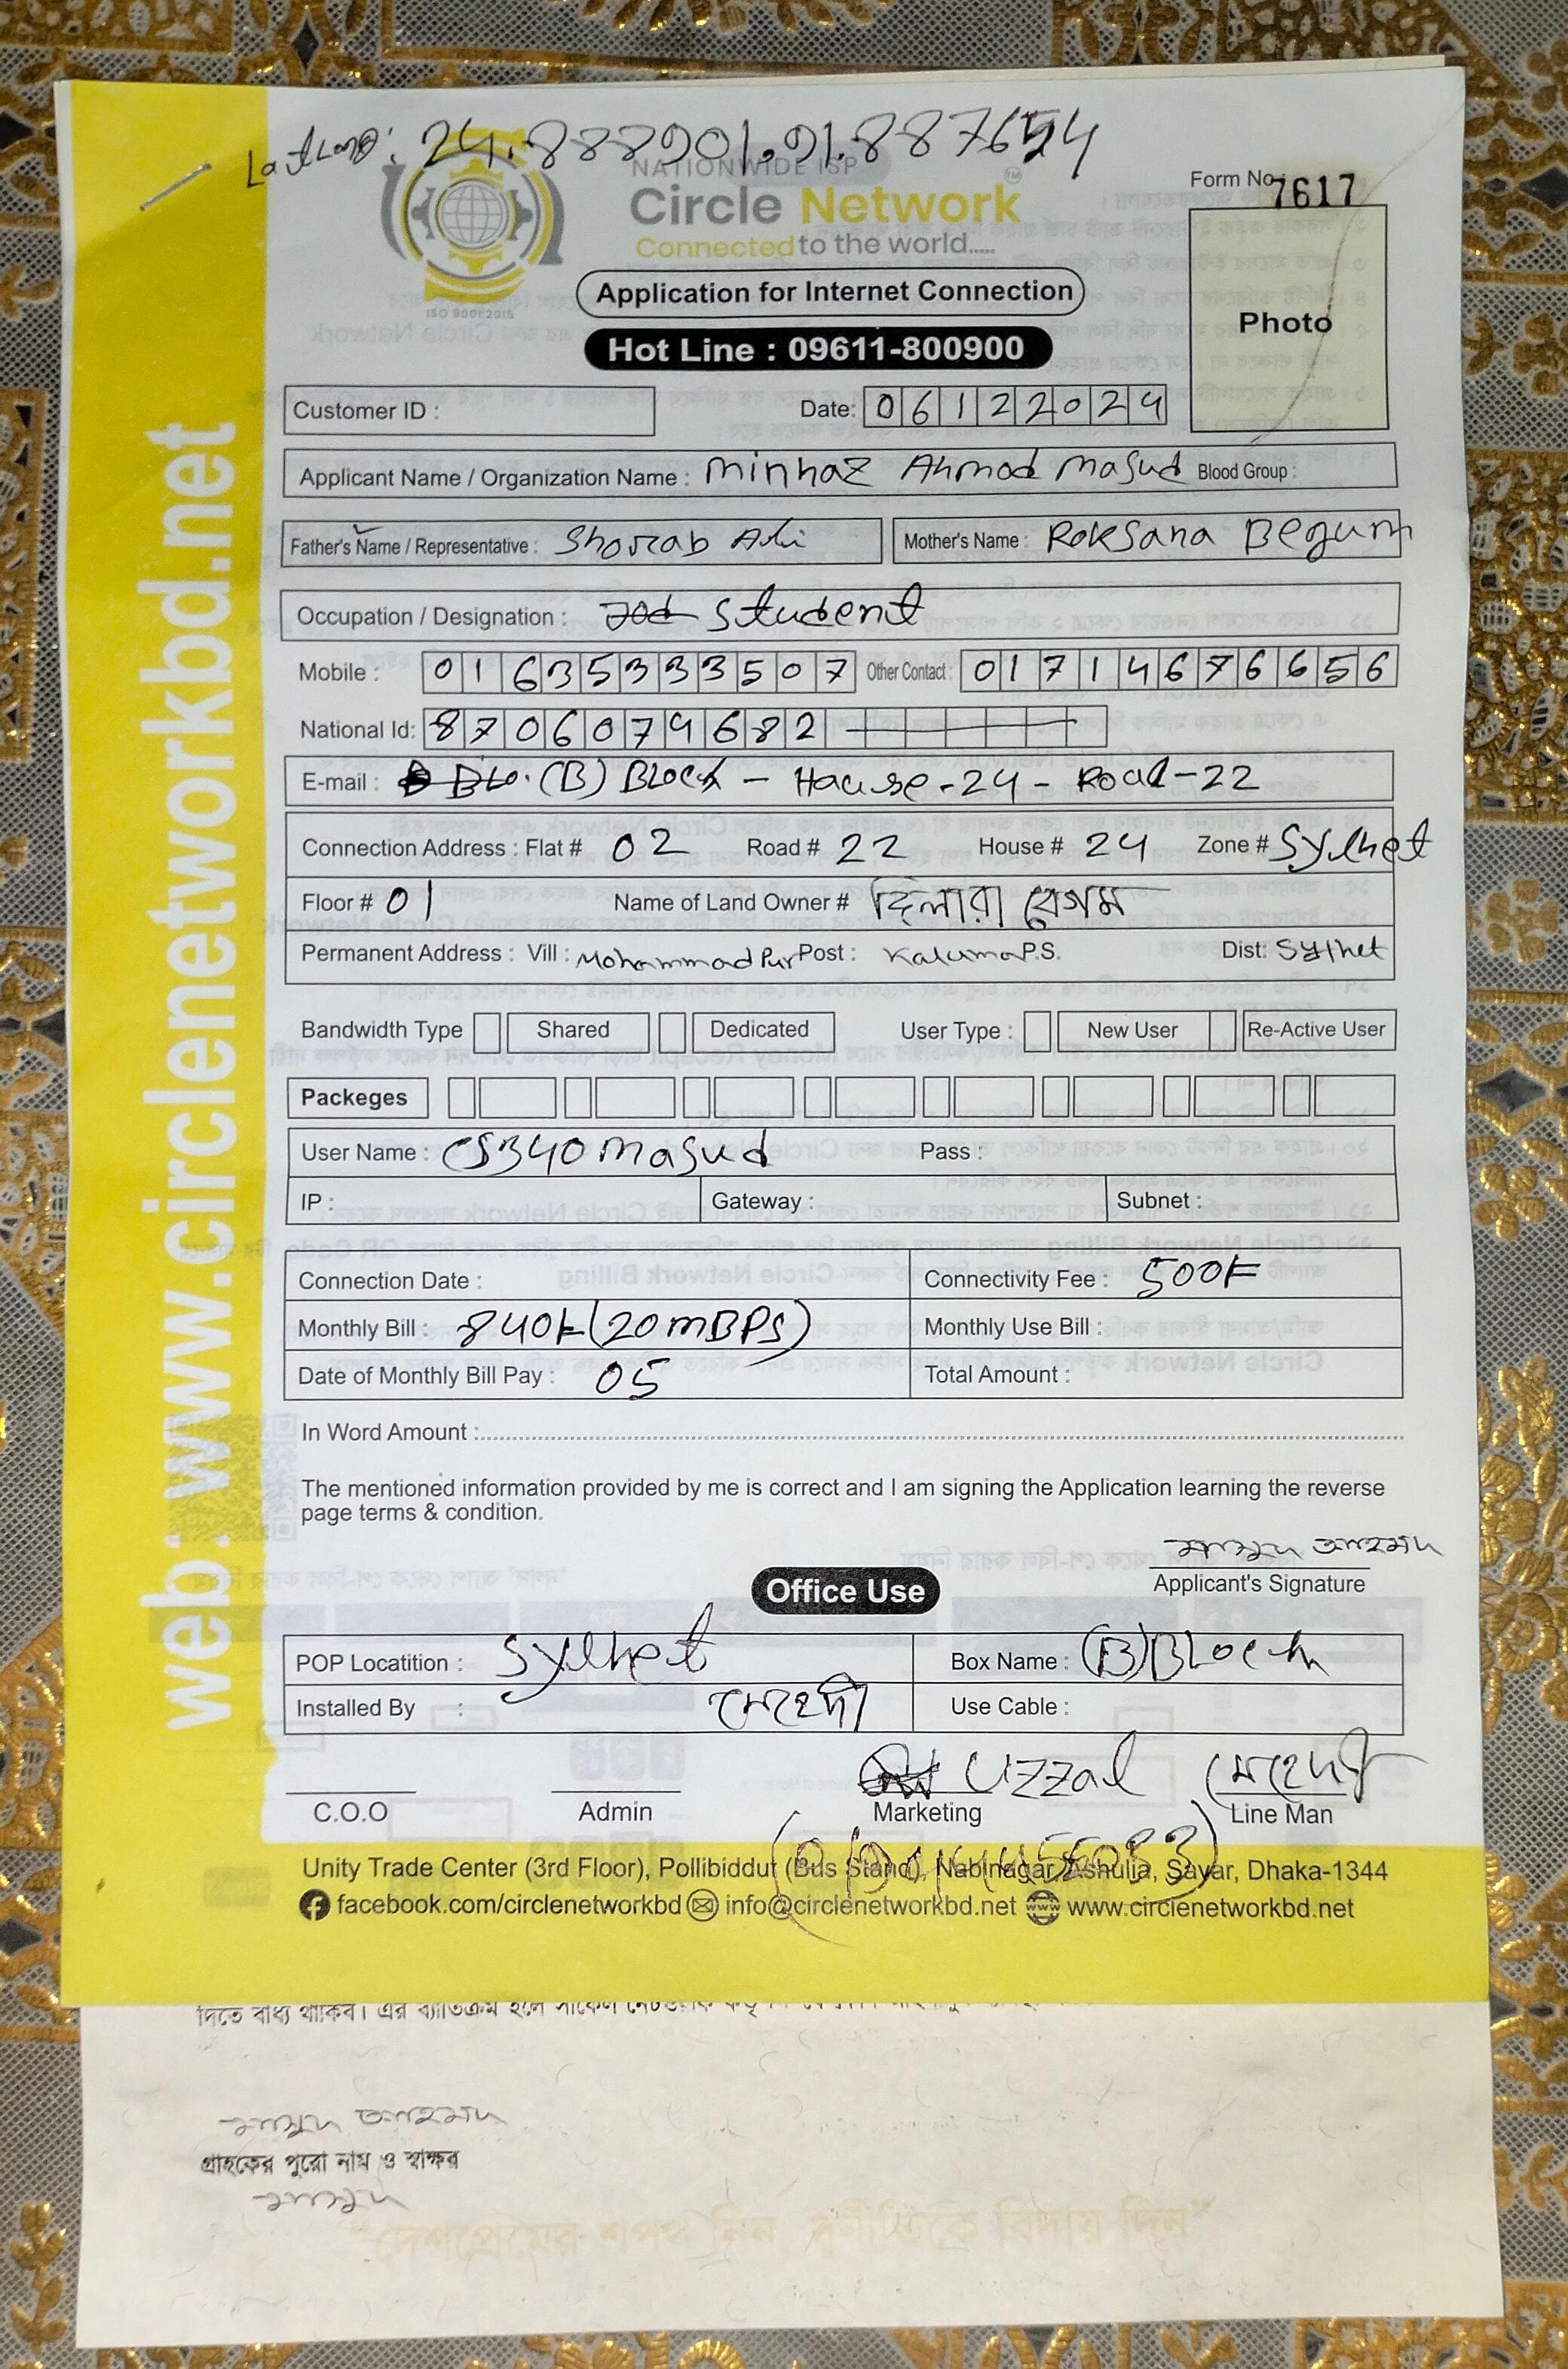 LatLong: 24.888901,91.887654
NATIONWIDE ISP
Circle Network
Connected to the world.....
ISO 9001:2015
Form No: 7617
Photo
Application for Internet Connection
Hot Line : 09611-800900
Customer ID :
Date: 06122024
Applicant Name / Organization Name : Minhaz Ahmod Masud Blood Group :
Father's Name / Representative : Shorab Ali Mother's Name : Roksana Begum
Occupation / Designation : Student
Mobile : 01635333507 Other Contact : 01714676656
National Id: 8706074682
E-mail : (B) Block - House-24 - Road-22
Connection Address : Flat # 02 Road # 22 House # 24 Zone # Sylhet
Floor # 01 Name of Land Owner # দিলারা বেগম
Permanent Address : Vill : Mohammadpur Post : Kaluma P.S. Dist: Sylhet
Bandwidth Type Shared Dedicated User Type : New User Re-Active User
Packeges
User Name : CS340masud Pass :
IP : Gateway : Subnet :
Connection Date : Connectivity Fee : 500৳
Monthly Bill : 840৳ (20mBPS) Monthly Use Bill :
Date of Monthly Bill Pay : 05 Total Amount :
In Word Amount :
The mentioned information provided by me is correct and I am signing the Application learning the reverse
page terms & condition.
মাসুদ আহমদ
Applicant's Signature
Office Use
POP Locatition : Sylhet Box Name : (B) Block
Installed By : মেহেদী Use Cable :
Uzzal মেহেদী
C.O.O Admin Marketing Line Man
Unity Trade Center (3rd Floor), Pollibiddut (Bus Stand), Nabinagar, Ashulia, Savar, Dhaka-1344
facebook.com/circlenetworkbd info@circlenetworkbd.net www.circlenetworkbd.net
web: www.circlenetworkbd.net
দিতে বাধ্য থাকিব। এর ব্যতিক্রম হলে সার্কেল নেটওয়ার্ক
মাসুদ আহমদ
গ্রাহকের পুরো নাম ও স্বাক্ষর
মাসুদ
"দেশপ্রেমের শপথ নিন, দুর্নীতিকে বিদায় দিন"